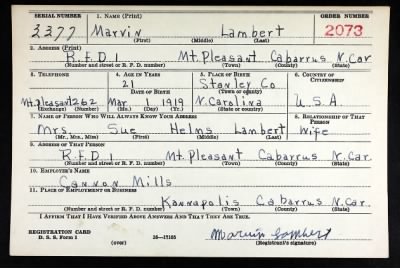 SERIAL NUMBER 1. NAME (Print) ORDER NUMBER
2377 Marvin Lambert 2073
(First) (Middle) (Last)
2. ADDRESS (Print)
R.F.D 1 Mt. Pleasant Cabarrus N. Car
(Number and street or R. F. D. number) (Town) (County) (State)
3. TELEPHONE 4. AGE IN YEARS 5. PLACE OF BIRTH 6. COUNTRY OF CITIZENSHIP
21 Stanley Co
DATE OF BIRTH (Town or county)
Mt. Pleasant 262 Mar 1 1919 N. Carolina U.S.A.
(Exchange) (Number) (Mo.) (Day) (Yr.) (State or country)
7. NAME OF PERSON WHO WILL ALWAYS KNOW YOUR ADDRESS 8. RELATIONSHIP OF THAT PERSON
Mrs. Sue Helms Lambert Wife
(Mr., Mrs., Miss) (First) (Middle) (Last)
9. ADDRESS OF THAT PERSON
R.F.D 1 Mt. Pleasant Cabarrus N. Car.
(Number and street or R. F. D. number) (Town) (County) (State)
10. EMPLOYER'S NAME
Cannon Mills
11. PLACE OF EMPLOYMENT OR BUSINESS
Kannapolis Cabarrus N. Car.
(Number and street or R. F. D. number) (Town) (County) (State)
I AFFIRM THAT I HAVE VERIFIED ABOVE ANSWERS AND THAT THEY ARE TRUE.
REGISTRATION CARD Marvin Lambert
D. S. S. Form 1 (over) 16—17105 (Registrant's signature)